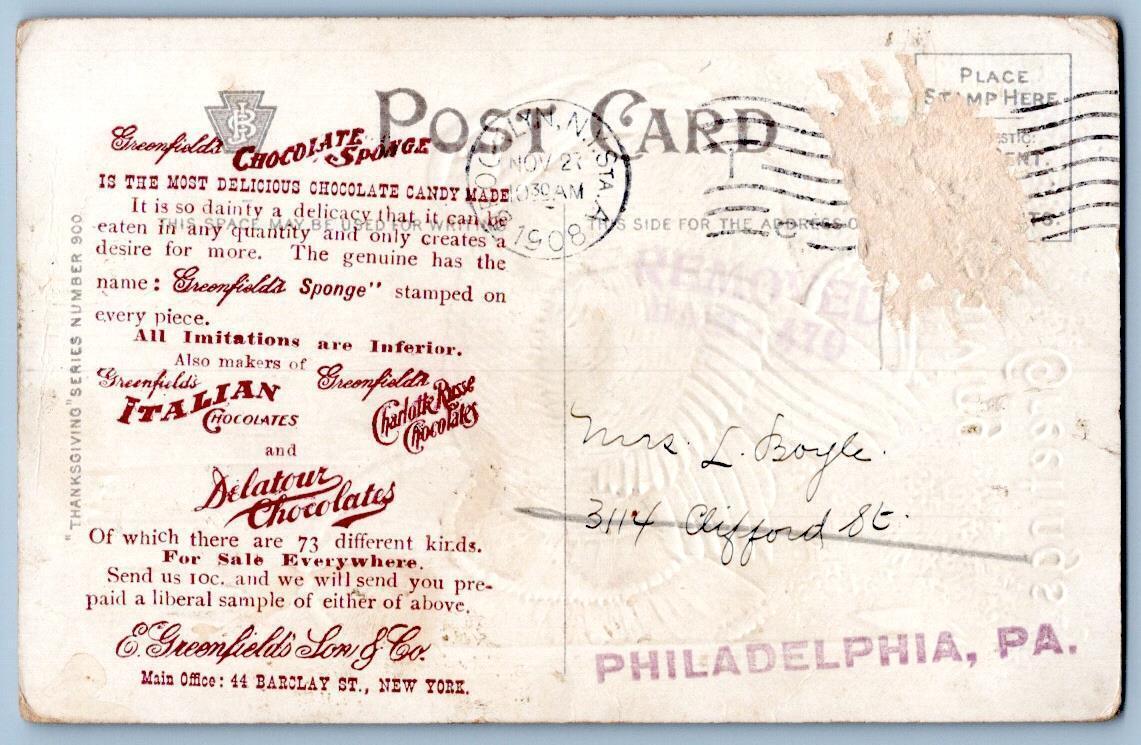 POST CARD
PLACE
STAMP HERE
BROOKLYN, N.Y. STA. A
NOV 27
1030 AM
1908
THIS SPACE MAY BE USED FOR WRITING
THIS SIDE FOR THE ADDRESS
"THANKSGIVING" SERIES NUMBER 900.
Greenfield's CHOCOLATE SPONGE
IS THE MOST DELICIOUS CHOCOLATE CANDY MADE
It is so dainty a delicacy that it can be
eaten in any quantity and only creates a
desire for more. The genuine has the
name: Greenfield's Sponge" stamped on
every piece.
All Imitations are Inferior.
Also makers of
Greenfield's ITALIAN CHOCOLATES
Greenfield's Charlotte Russe Chocolates
and
Delatour Chocolates
Of which there are 73 different kinds.
For Sale Everywhere.
Send us 10c. and we will send you pre-
paid a liberal sample of either of above.
E. Greenfield's Son & Co.
Main Office: 44 BARCLAY ST., NEW YORK.
REMOVED
470
Mrs. L. Boyle.
3114 Clifford St.
PHILADELPHIA, PA.